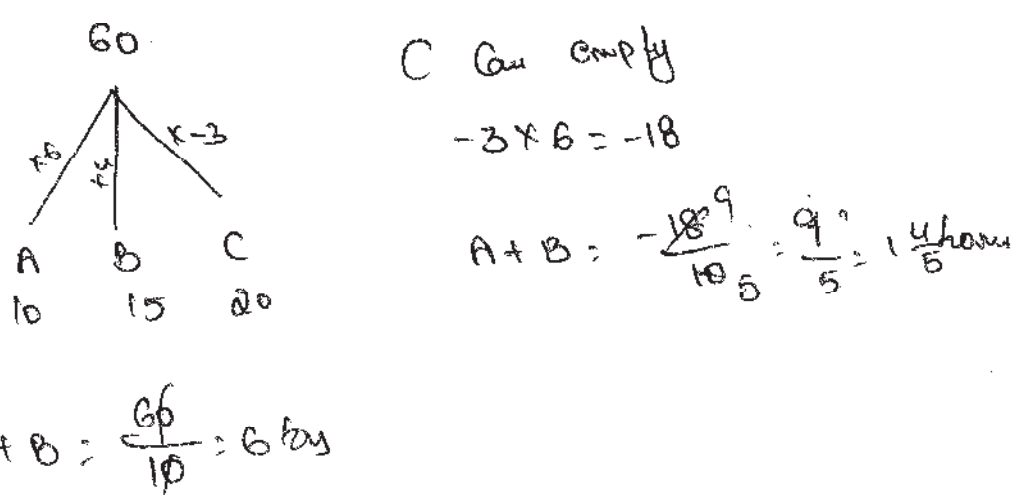 60
+6 +4 x-3
A B C
10 15 20
+ B = 60/10 = 6 hrs
C Can empty
-3 x 6 = -18
A + B = -18 9/10 5 = 9/5 = 1 4/5 hours